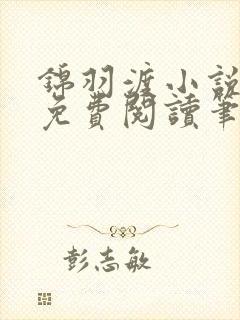 錦羽渡小說
免費閱讀筆
彭志敏